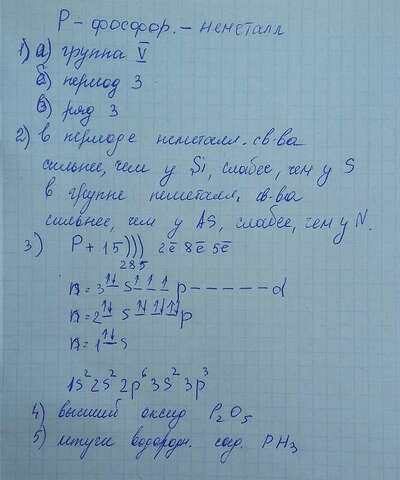 P - фосфор. - неметалл
1) а) группа V
б) период 3
в) ряд 3
2) в периоде неметалл. св-ва
сильнее, чем у Si, слабее, чем у S
в группе неметалл. св-ва
сильнее, чем у As, слабее, чем у N.
3) P + 15))) 2ē 8ē 5ē
2 8 5
n = 3 ↑↓ s ↑ ↑ ↑ p - - - - - d
n = 2 ↑↓ s ↑↓ ↑↓ ↑↓ p
n = 1 ↑↓ s
1s² 2s² 2p⁶ 3s² 3p³
4) высший оксид P₂O₅
5) летуч. водородн. соед. PH₃